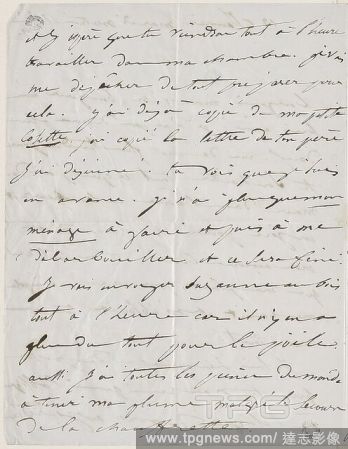 et j'espère que tu viendras tout à l'heure
travailler dans ma chambre. je vais
me dépêcher de tout préparer pour
cela. j'ai déjà copié de ma petite
j'ai copié la lettre de ton père
j'ai déjeuné. tu vois que je suis
en avance. je n'ai plus que mon
ménage à faire et puis à me
débarbouiller et ce sera fini
Je vais envoyer Suzanne au bois
tout à l'heure car il n'y en a
plus du tout pour le poële
aussi j'ai toutes les peines du monde
à tenir ma plume malgré le secours
de la chaufferette.
TPG
www.tpgnews.com / 達志影像